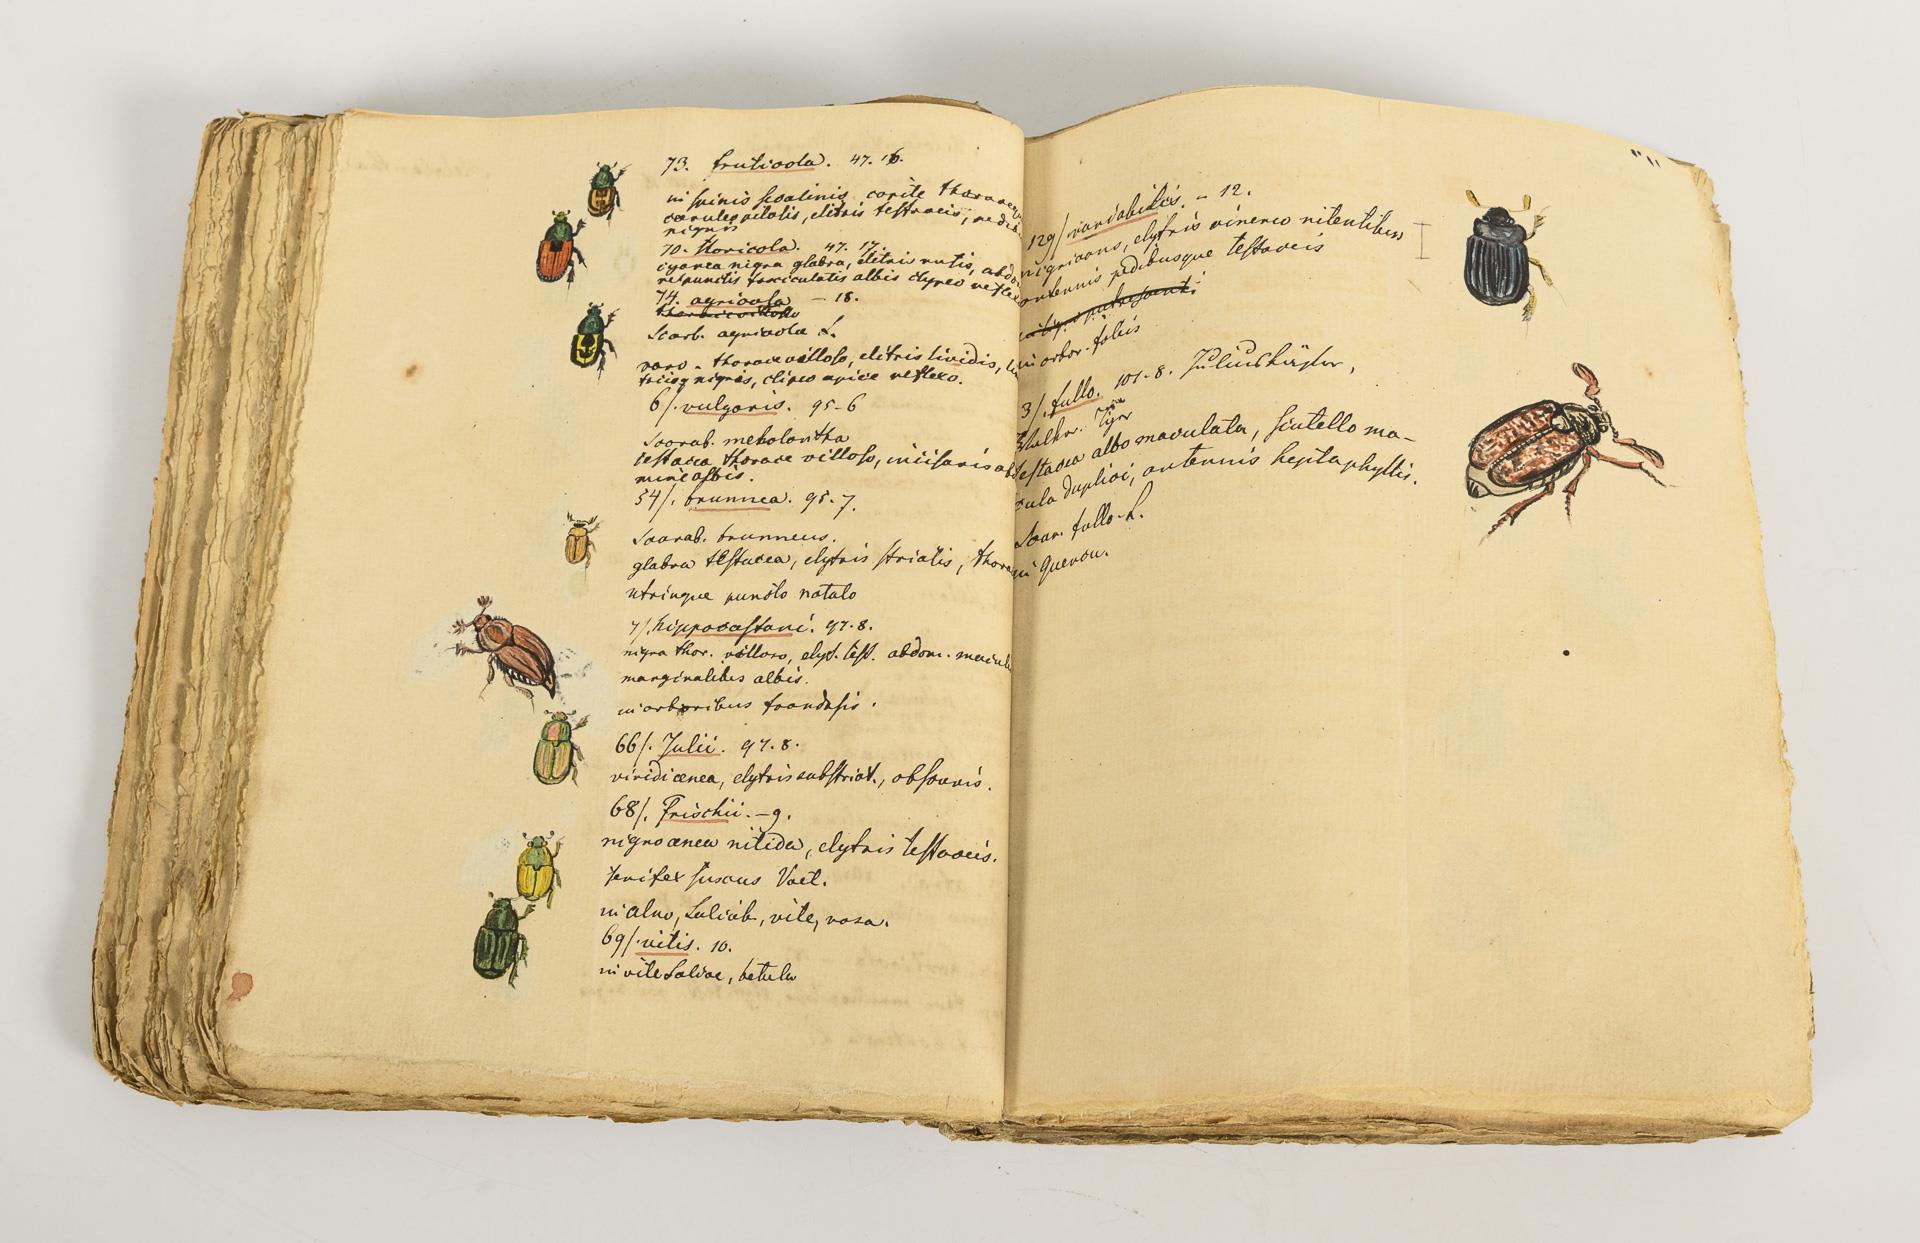 73. fruticola. 47. 16.
in spinis secalinis, capite thorace
pilosis, elitris testaceis, pedib.
nigris
70. horticola. 47. 17.
cyanea nigra glabra, elitris rutis, abdo
fasciculatis albis clypeo reflexo
74. agricola — 18.
Scarb. agricola L.
thorace villoso, elitris lividis,
nigris, clipeo apice reflexo.
6/. vulgaris. 95-6
Scarab. melolontha
testacea thorace villoso, incisuris ab
mine albis.
54/. brunnea. 95-7.
Scarab. brunneus.
glabra testacea, elytris striatis, thora
utrinque puncto notato
7/. hippocastani. 97.8.
nigra thor. villoso, elyt. test. abdom. macul
marginalibus albis.
in arboribus frondosis.
66/. Julii. 97.8.
viridi ænea, elytris substriat., obscuris.
68/. Frischii. — 9.
nigro ænea nitida, elytris testaceis.
fuscus Voet.
in alno, Salicib., vite, rosa.
69/. vitis. 10.
in vite Salice, betula
129/ variabilis. — 12.
nigricans, elytris cinereo nitentibus
antennis pedibusque testaceis
in arbor. foliis
3/. fullo. 101-8. Juliuskäfer,
Walker. Tiger
testacea albo maculata, scutello ma-
cula duplici, antennis heptaphyllis.
Scar. fullo L.
in Quercu.